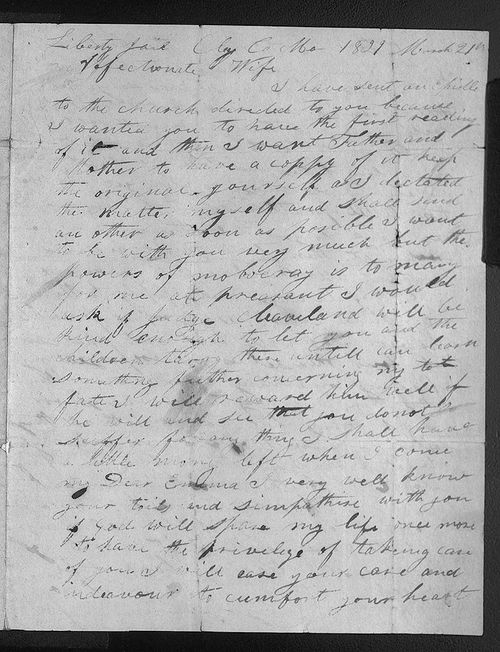 Liberty Jail Clay Co Mo 1839 March 21st
Affectionate Wife
I have sent an Epistle
to the church directed to you because
I wanted you to have the first reading
of it and then I want Father and
Mother to have a coppy of it keep
the original yourself as I dectated
the matter myself and shall send
an other as soon as posible I want
to be with you very much but the
powers of mobocracy is to many
for me at preasant I would
ask if Judge Cleaveland will be
kind enough to let you and the
children tarry there untill can learn
something further concerning my
fate I will reward him well if
he will and see that you do not
suffer for any thing I shall have
a little mony left when I come
my Dear Emma I very well know
your toils and simpathise with you
if God will spare my life once more
to have the privelege of takeing care
of you I will ease your care and
indeavour to cumfort your heart